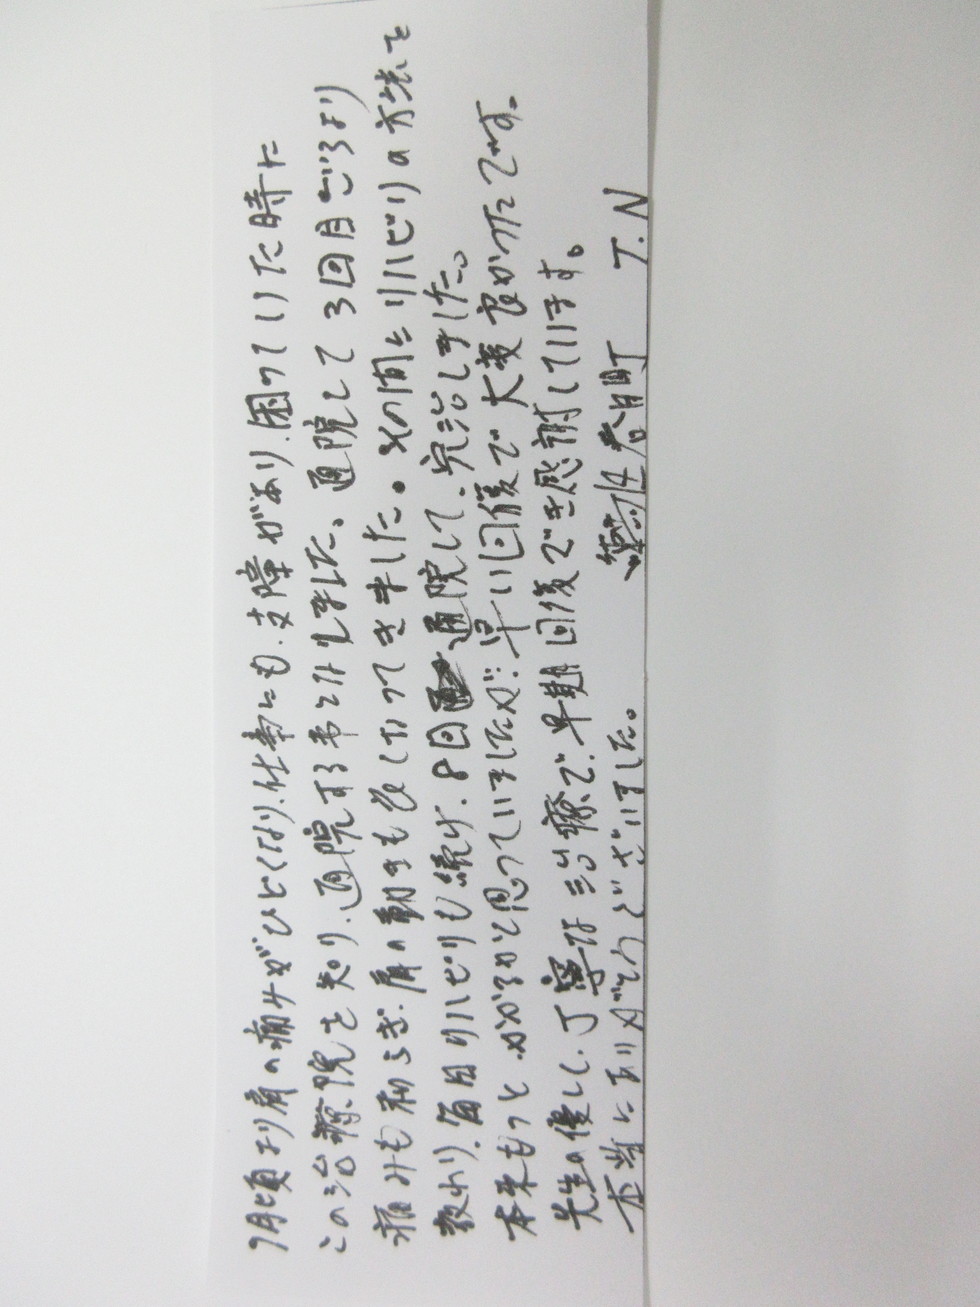 7月頃より肩の痛みがひどくなり、仕事にも、支障があり、困っていた時に
この治療院を知り、通院する事にしました、通院して3回目ごろより
痛みも和らぎ、肩の動きも良くなってきました。その間にリハビリの方法を
教わり、毎日リハビリも続け、8回通院して、完治しました。
本来もっとかかるかと思っていましたが、早い回復で大変良かったです。
先生の優しく、丁寧な治療で、早期回復でき感謝しています。
本当にありがとうございました。 春日町 T.N